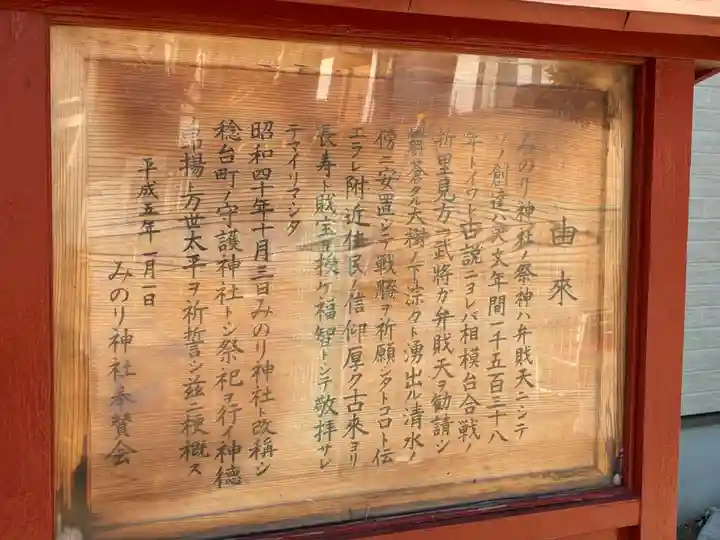 由來
みのり神社ノ祭神ハ弁賎天ニシテ
ソノ創建ハ天文年間一千五百三十八
年トイワレ古説ニヨレバ相模台合戦ノ
折里見方一武将ガ弁賎天ヲ勧請シ
蒼タル大樹ノ下滾々ト湧出ル清水ノ
傍ニ安置シテ戦勝ヲ祈願シタトコロト伝
エラレ附近住民ノ信仰厚ク古來ヨリ
長寿ト賎宝ヲ授ケ福智トシテ敬拝サレ
テマイリマシタ
昭和四十年十月三日みのり神社ト改称シ
稔台町ノ守護神社トシ祭祀ヲ行イ神徳
昂揚ト万世太平ヲ祈誓シ玆ニ梗概ス
平成五年一月一日
みのり神社奉賛会